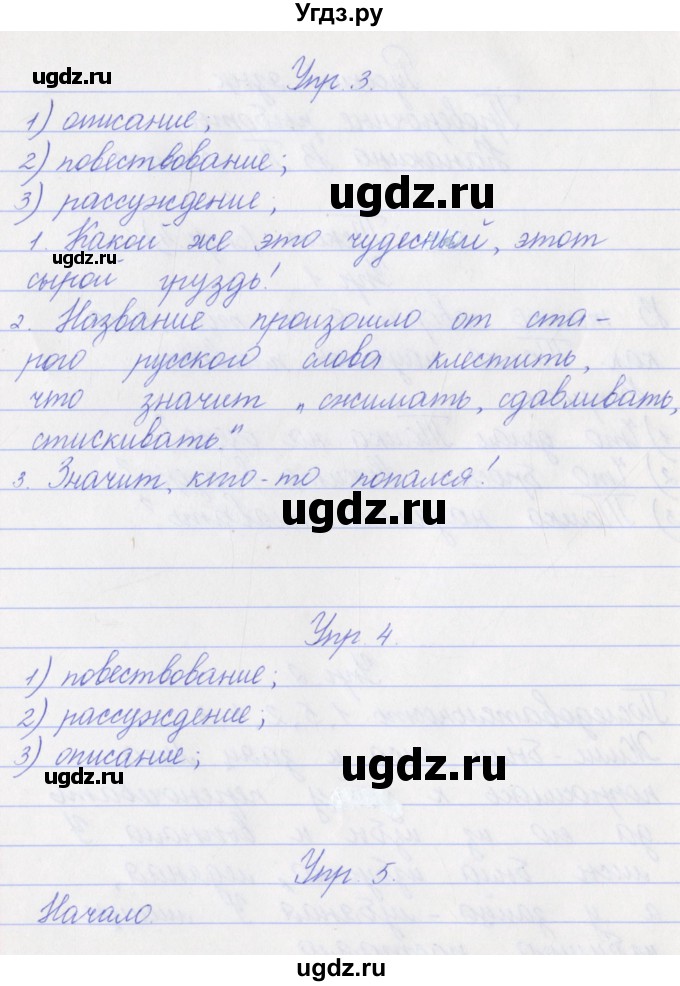 Угдз.ру
ugdz.ru
Упр. 3.
1) описание;
2) повествование;
ugdz.ru
ugdz.ru
3) рассуждение;
1. Какой же это чудесный, этот
сырой груздь!
2. Название произошло от ста-
рого русского слова клестить,
что значит „сжимать, сдавливать,
стискивать."
3. Значит, кто-то попался!
ugdz.ru
Упр. 4.
1) повествование;
2) рассуждение;
ugdz.ru
3) описание;
ugdz.ru
ugdz.ru
Упр. 5.
Начало.
ugdz.ru
ugdz.ru